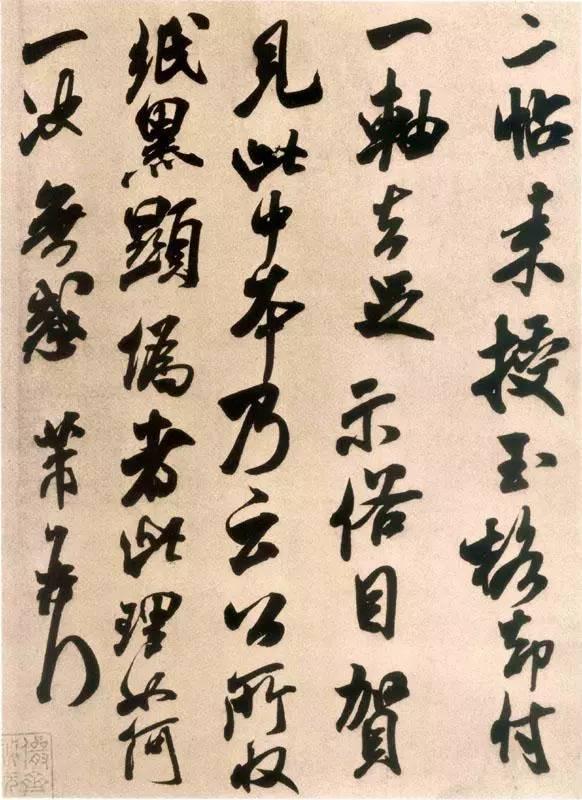 二帖来授玉格却付
一軸去足示俗目賀
見此中本乃云公所收
紙黑顯偽者此理如何
一決無惑 芾頓首